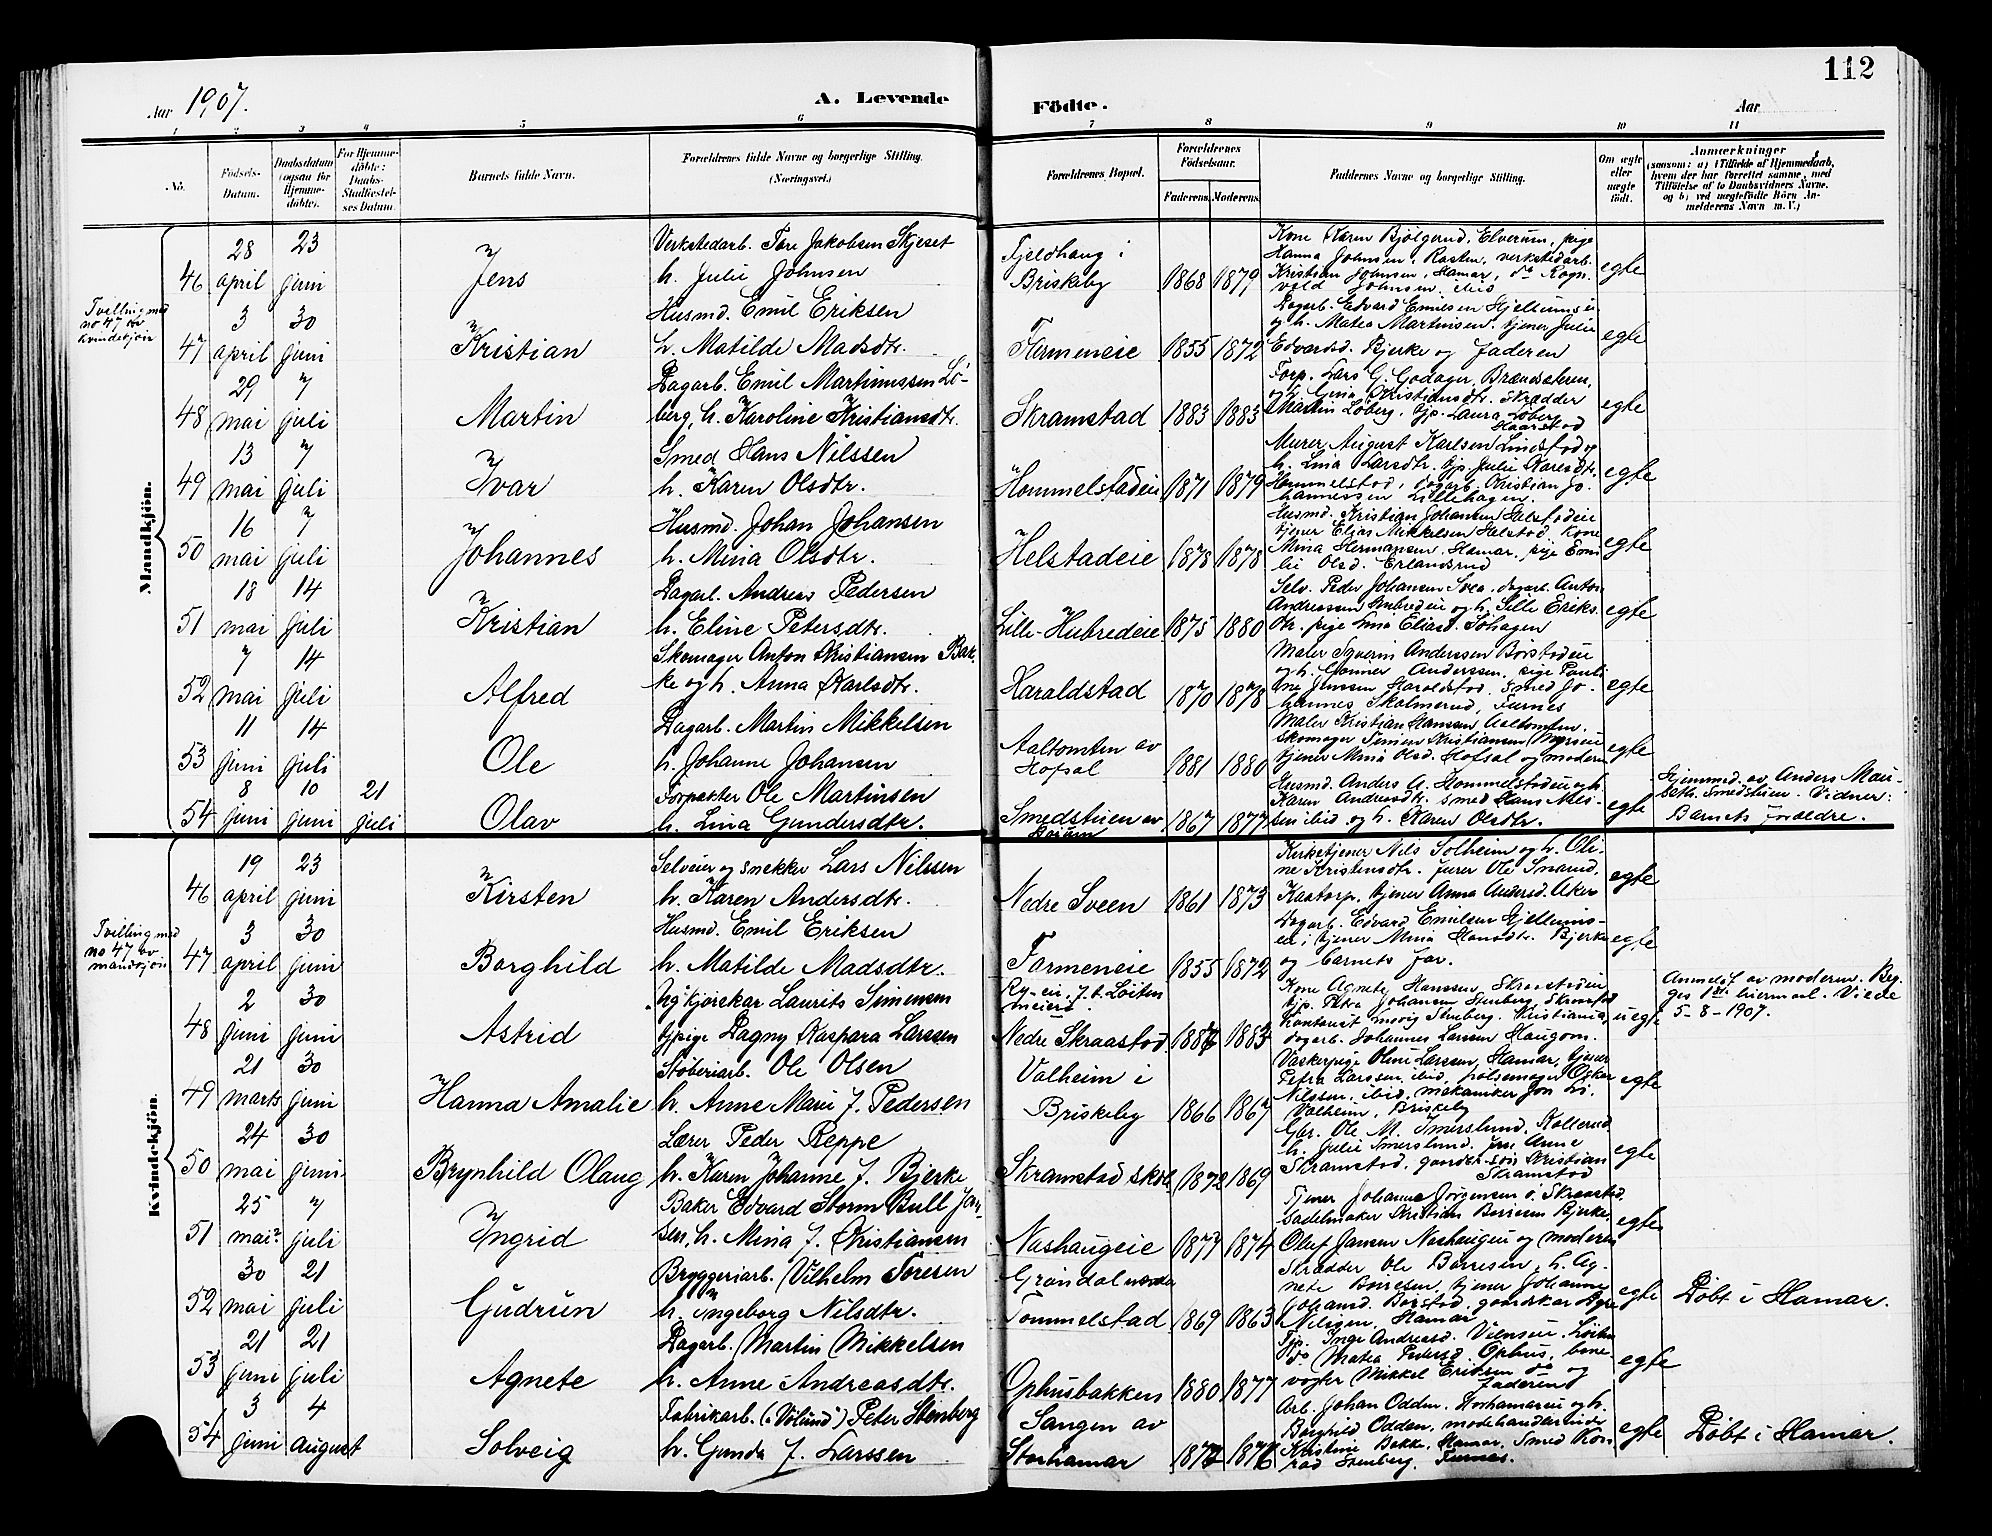 112
Aar 1907.
A. Levende
Födte.
Aar
1 2 3 4 5 6 7 8 9 10 11
No.
Födsels-Datum.
Daabsdatum (ogsaa for Hjemme-döbte).
For Hjemme-döbte: Daabs-Stadfæstel-ses Datum.
Barnets fulde Navn.
Forældrenes fulde Navne og borgerlige Stilling. (Næringsvei.)
Forældrenes Bopæl.
Forældrenes Födselsaar.
Faderens. Moderens.
Faddernes Navne og borgerlige Stilling.
Om ægte eller uægte födt.
Anmærkninger
(saasom: a) i Tilfælde af Hjemmedaab,
hvem der har forrettet samme, med
Tilföielse af to Daabsvidners Navne.
og b) ved uægtefödte Börn An-
melderens Navn m. V.)
Mandkjön.
46 28 april 23 juni Jens
Verkstedarb. Tore Jakobsen Skjeset
h. Julie Johnsen
Fjeldhaug i
Briskeby 1868 1879
Kone Karen Bjölgerud, Elverum, pige
Hanna Johnsen, Rasten, verkstedarb.
Kristian Johnsen, Hamar, do Ragn-
vald Johnsen, ibid
egte
Tvilling med
no 47 av
kvindekjön
47 3 april 30 juni Kristian
Husmd. Emil Eriksen
h. Matilde Madsdtr.
Farmeneie 1855 1872
Dagarb. Edvard Emilsen Hjellumsei
og h. Matea Martinsen, tjener Julie
Edvardsd. Bjerke og faderen
egte
48 29 mai 7 juli Martin
Dagarb. Emil Martinussen Lö-
berg, h. Karoline Kristiansdtr.
Skramstad 1883 1883
Forp. Lars G. Godager, Brændsæteren,
og h. Gina Kristiansdtr. Skrædder
Martin Löberg, tjp. Laura Löberg
Haarstad
egte
49 13 mai 7 juli Ivar
Smed Hans Nilssen
h. Karen Olsdtr.
Hommelstadeie 1871 1879
Murer August Karlsen Lundstad og
h. Lina Larsdtr. tjp. Julie Karlsdtr.
Hommelstad, dagarb. Kristian Jo-
hannessen Lillehagen.
egte
50 16 mai 7 juli Johannes
Husmd. Johan Johansen
h. Mina Olsdtr.
Helstadeie 1878 1878
Husmd. Kristian Johansen Helstadeie
tjener Elias Mikkelsen Helstad, Kone
Mina Hermansen, Hamar, pige Emi-
lie Olsd. Erlandsrud
egte
51 18 mai 14 juli Kristian
Dagarb. Andreas Pedersen
h. Eline Petersdtr.
Lille-Hubredeie 1875 1880
Selv. Peder Johansen Svea, dagarb. Anton
Andreassen Hubredeie og h. Sille Eriks-
dtr. pige Lina Eliasd. Sohagen
egte
52 7 mai 14 juli Alfred
Skomager Anton Kristiansen Bak-
ke og h. Anna Karlsdtr.
Haraldstad 1870 1878
Maler Severin Anderssen Börstadeie
og h. Gunner Anderssen, pige Pauli-
ne Jenssen Haraldstad, smed Jo-
hannes Skolmerud, Furnes
egte
53 11 juni 14 juli Ole
Dagarb. Martin Mikkelsen
h. Johanne Johansen
Aaltomten av
Hofsal 1881 1880
Maler Kristian Hansen Aaltomten,
skomager Simen Kristiansen Myrseie
tjener Mina Olsd. Hofsal og moderen
egte
54 8 juni 10 juni 21 juli Olav
Forpakter Ole Martinsen
h. Lina Gundersdtr.
Smedstuen av
1867 1877
Husmd. Anders A. Hommelstadeie og h.
Karen Andersdtr. smed Hans Nils-
sen ibid og h. Karen Olsdtr.
egte
Hjemmed. av Anders Mau-
seth, Smedstuen. Vidner:
Barnets forældre.
Kvindekjön.
46 19 april 23 juni Kirsten
Selveier og snekker Lars Nilssen
h. Karen Andersdtr.
Nedre Sveen 1861 1873
Kirketjener Nils Solheim og h. Oli-
ne Kristinsdtr. furer Ole Smerud,
Kaatorp, tjener Anna Andersd. Aker
egte
Tvilling med
no 47 av
mandkjön
47 3 april 30 juni Borghild
Husmd. Emil Eriksen
h. Matilde Madsdtr.
Farmeneie 1855 1872
Dagarb. Edvard Emilsen Hjellums-
ei, tjener Mina Hansdtr. Bjerke
og barnets far.
egte
48 2 juni 30 juni Astrid
Ug. kjörekar Laurits Simensen
tjpige Dagny Kaspara Larssen
Ry-eie, f. t. Löiten
meieri.
Nedre Skraastad 1887 1883
Kone Agnete Hanssen, Skraastadeie
tjp. Petra Johansen Stenberg, Skraastad
Kontorist Ludvig Stenberg, Kristiania,
dagarb. Johannes Larssen Haugom.
uegte
Anmeldt av moderen. Beg-
ges 1ste leiermaal. Viede
5-8-1907.
49 21 marts 30 juni Hanna Amalie
Stöberiarb. Ole Olsen
h. Anne Marie f. Pedersen
Valheim i
Briskeby 1866 1867
Vaskerpige Oline Larssen, Hamar, tjener
Petra Larssen, ibid, pölsemager Oskar
Nilssen, ibid, mekaniker Jon Lö,
Valheim, Briskeby
egte
50 24 mai 30 juni Brynhild Olaug
Lærer Peder Reppe
h. Karen Johanne f. Bjerke
Skramstad skole 1872 1869
Gbr. Ole M. Imerslund, Kolterud
h. Julie Imerslund, frk. Anne
Skramstad, gaardbr. sön Kristian
Skramstad
egte
51 25 mai 7 juli Ingrid
Baker Edvard Storm Bull Jan-
sen, h. Mina f. Kristiansen
Nashaugeie 1877 1874
Tjener Johanne Jörgensen i Skraastad,
sadelmaker Kristian Berjesen Bjerke,
Oluf Jansen Nashaugeie og moderen
egte
52 30 mai 21 juli Gudrun
Bryggeriarb. Vilhelm Toresen
h. Ingeborg Nilsdtr.
Gröndal nordre
Tommelstad 1869 1863
Skrædder Ole Börresen, h. Ag-
nete Börresen, tjener Johanne
Johansd. Börstad, gaardskar Agre
Nilsen, Hamar
egte
Döbt i Hamar.
53 21 juni 21 juli Agnete
Dagarb. Martin Mikkelsen
h. Anne Andreasdtr.
Ophusbakken 1880 1877
Tjp. Inga Andreasd. Vienseie, Löiten
do Matea Pedersd. Ophus, bane-
vogter Mikkel Eriksen do og
faderen
egte
54 3 juni 4 august Solveig
Fabrikarb. (i "Völund") Peter Stenberg
h. Gunda f. Larssen
Sangen av
Storhamar 1872 1876
Arb. Johan Odden, Storhamareie og h.
Borghild Odden, modehandlerinde
Kristine Bakke, Hamar, Smed Kon-
rad Stenberg, Furnes.
egte
Döbt i Hamar.